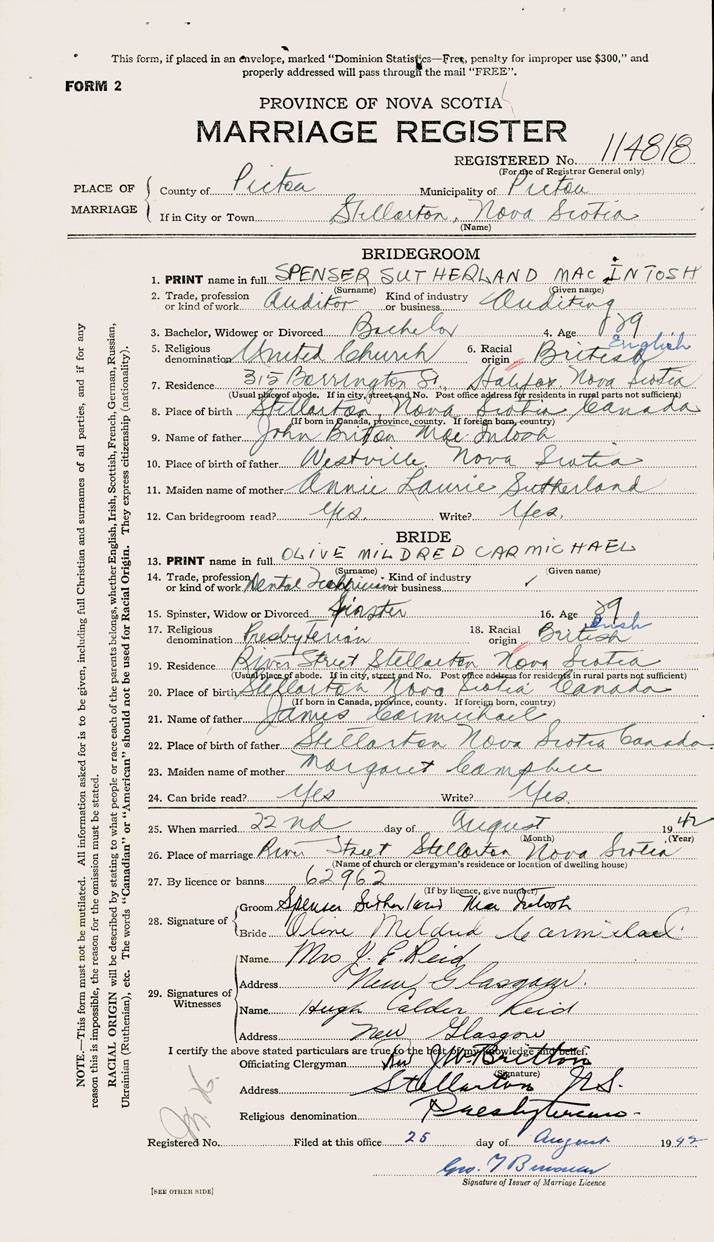 This form, if placed in an envelope, marked "Dominion Statistics—Free, penalty for improper use $300," and
properly addressed will pass through the mail "FREE".
FORM 2
PROVINCE OF NOVA SCOTIA
MARRIAGE REGISTER
REGISTERED No. 114818
(For use of Registrar General only)
PLACE OF MARRIAGE
County of Pictou Municipality of Pictou
If in City or Town Stellarton, Nova Scotia
(Name)
BRIDEGROOM
1. PRINT name in full SPENSER SUTHERLAND MAC INTOSH
(Surname) (Given name)
2. Trade, profession or kind of work Auditor Kind of industry or business Auditing
3. Bachelor, Widower or Divorced Bachelor 4. Age 29
5. Religious denomination United Church 6. Racial origin British English
7. Residence 315 Barrington St., Halifax. Nova Scotia
(Usual place of abode. If in city, street and No. Post office address for residents in rural parts not sufficient)
8. Place of birth Stellarton, Nova Scotia Canada
(If born in Canada, province, county. If foreign born, country)
9. Name of father John Britton Mac Intosh
10. Place of birth of father Westville, Nova Scotia
11. Maiden name of mother Annie Laurie Sutherland
12. Can bridegroom read? Yes. Write? Yes.
BRIDE
13. PRINT name in full OLIVE MILDRED CARMICHAEL
(Surname) (Given name)
14. Trade, profession or kind of work Dental Technician Kind of industry or business
15. Spinster, Widow or Divorced Spinster 16. Age 29
17. Religious denomination Presbyterian 18. Racial origin British
19. Residence River Street Stellarton Nova Scotia
(Usual place of abode. If in city, street and No. Post office address for residents in rural parts not sufficient)
20. Place of birth Stellarton Nova Scotia Canada
(If born in Canada, province, county. If foreign born, country)
21. Name of father James Carmichael
22. Place of birth of father Stellarton Nova Scotia Canada
23. Maiden name of mother Margaret
24. Can bride read? Yes Write? Yes.
25. When married 22nd day of August 1942
(Month) (Year)
26. Place of marriage River Street Stellarton Nova Scotia
(Name of church or clergyman's residence or location of dwelling house)
27. By licence or banns 62962
(If by licence, give number)
28. Signature of
Groom Spenser Sutherland Mac Intosh
Bride Olive Mildred Carmichael
29. Signatures of Witnesses
Name Mrs J. E. Reid
Address New Glasgow.
Name Hugh Calder Reid
Address New Glasgow
I certify the above stated particulars are true to the best of my knowledge and belief.
Officiating Clergyman Rev J. W. Britton
(Signature)
Address Stellarton N.S.
Religious denomination Presbyterian
Registered No. Filed at this office 25 day of August 1942
Signature of Issuer of Marriage Licence
[SEE OTHER SIDE]
NOTE.—This form must not be mutilated. All information asked for is to be given, including full Christian and surnames of all parties, and if for any
reason this is impossible, the reason for the omission must be stated.
RACIAL ORIGIN will be described by stating to what people or race each of the parents belongs, whether English, Irish, Scottish, French, German, Russian,
Ukrainian (Ruthenian), etc. The words "Canadian" or "American" should not be used for Racial Origin. They express citizenship (nationality).